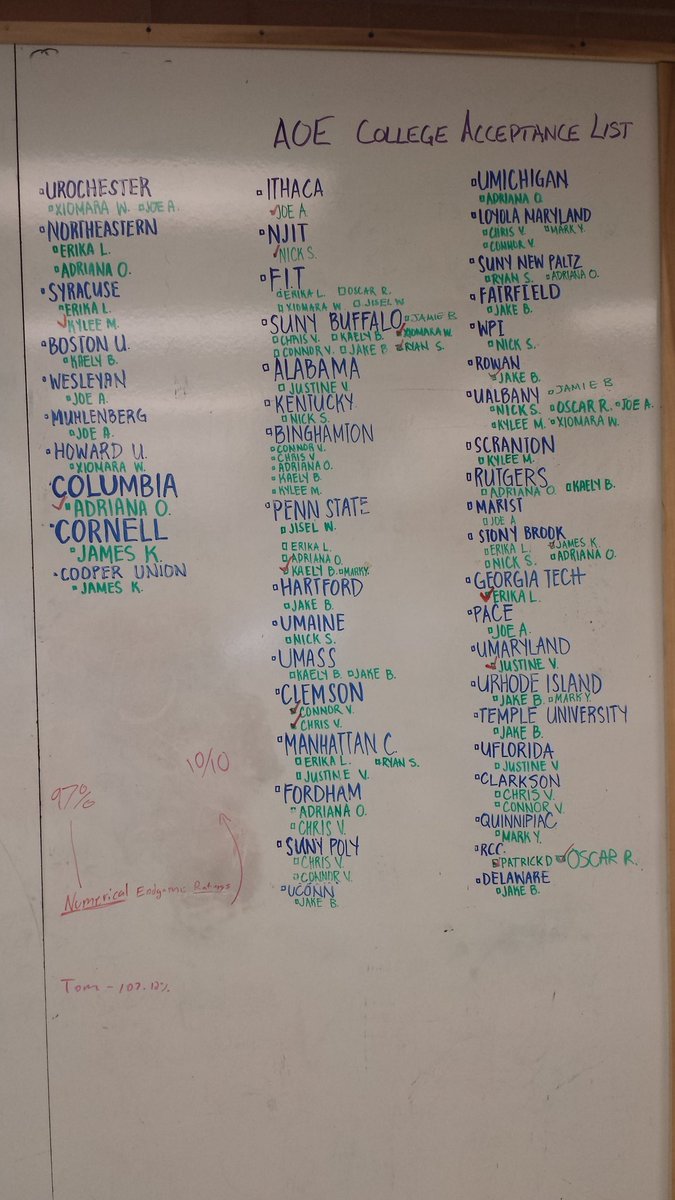 AOE COLLEGE ACCEPTANCE LIST
UROCHESTER
XIOMARA W. JOE A.
NORTHEASTERN
ERIKA L.
ADRIANA O.
SYRACUSE
ERIKA L.
KYLEE M.
BOSTON U.
KAELY B.
WESLEYAN
JOE A.
MUHLENBERG
JOE A.
HOWARD U.
XIOMARA W.
COLUMBIA
ADRIANA O.
CORNELL
JAMES K.
COOPER UNION
JAMES K.
ITHACA
JOE A.
NJIT
NICK S.
F.I.T
ERIKA L. OSCAR R.
XIOMARA W JISEL W
SUNY BUFFALO JAMIE B.
CHRIS V. KAELY B. XIOMARA W.
CONNOR V. JAKE B RYAN S.
ALABAMA
JUSTINE V.
KENTUCKY
NICK S.
BINGHAMTON
CONNOR V.
CHRIS V.
ADRIANA O.
KAELY B.
KYLEE M.
PENN STATE
JISEL W.
ERIKA L.
ADRIANA O.
KAELY B MARK Y.
HARTFORD
JAKE B.
UMAINE
NICK S.
UMASS
KAELY B JAKE B.
CLEMSON
CONNOR V.
CHRIS V.
MANHATTAN C.
ERIKA L. RYAN S.
JUSTINE V.
FORDHAM
ADRIANA O.
CHRIS V.
SUNY POLY
CHRIS V.
CONNOR V.
UCONN
JAKE B.
UMICHIGAN
ADRIANA O.
LOYOLA MARYLAND
CHRIS V. MARK Y.
CONNOR V.
SUNY NEW PALTZ
RYAN S. ADRIANA O.
FAIRFIELD
JAKE B.
WPI
NICK S.
ROWAN
JAKE B.
UALBANY JAMIE B
NICK S. OSCAR R. JOE A.
KYLEE M. XIOMARA W.
SCRANTON
KYLEE M.
RUTGERS
ADRIANA O. KAELY B.
MARIST
JOE A
STONY BROOK
ERIKA L. JAMES K.
NICK S. ADRIANA O.
GEORGIA TECH
ERIKA L.
PACE
JOE A.
UMARYLAND
JUSTINE V.
URHODE ISLAND
JAKE B. MARK Y.
TEMPLE UNIVERSITY
JAKE B.
UFLORIDA
JUSTINE V
CLARKSON
CHRIS V.
CONNOR V.
QUINNIPIAC
MARK Y.
RCC.
PATRICK D OSCAR R.
DELAWARE
JAKE B.
10/10
97%
Numerical Endgame Ratings
Tom - 107.12%